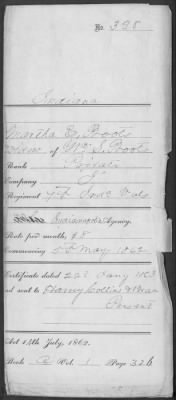 No. 398
Indiana
Martha E. Poole
Widow of Wm. S. Poole
Rank Private
Company "I"
Regiment Ind. Vols
Indianapolis Agency.
Rate per month, $8
Commencing May, 1862
Certificate dated 22d Jany 1863
and sent to Harvy Collins &
Present
Act 14th July, 1862.
Book A Vol. 1 Page 326